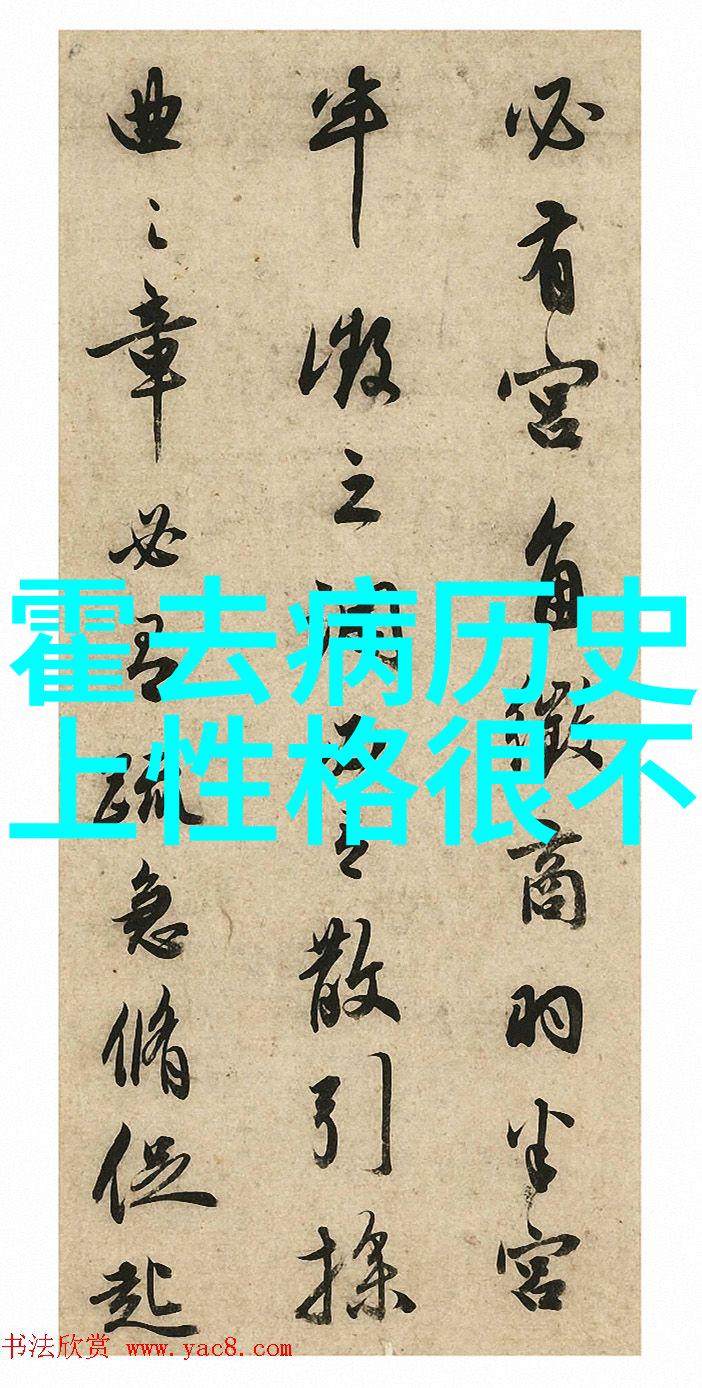 必有宫角徵商羽半宫
半徵之调必有散引操
曲之章必有疏急脩促起
霍去病历史
上性格很不
书法欣赏 www.yac8.com